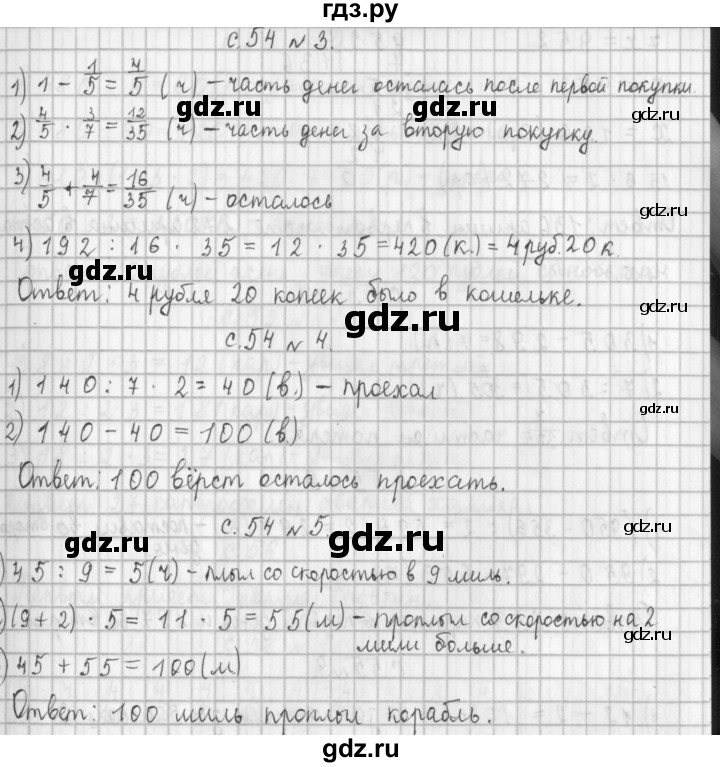 гдз.ру
с.54 № 3.
1) 1 - 1/5 = 4/5 (ч) - часть денег осталась после первой покупки.
gdz.ru gdz.ru
2) 4/5 · 3/7 = 12/35 (ч) - часть денег за вторую покупку.
gdz.ru
3) 4/5 + 4/7 = 16/35 (ч) - осталось
gdz.ru
4) 192 : 16 · 35 = 12 · 35 = 420 (к.) = 4 руб. 20 к.
gdz.ru
Ответ: 4 рубля 20 копеек было в кошельке.
gdz.ru gdz.ru
с.54 № 4.
1) 140 : 7 · 2 = 40 (в.) - проехал
gdz.ru
2) 140 - 40 = 100 (в.)
Ответ: 100 вёрст осталось проехать.
с.54 № 5
gdz.ru gdz.ru gdz.ru
) 45 : 9 = 5 (ч) - плыл со скоростью в 9 миль.
) (9 + 2) · 5 = 11 · 5 = 55 (м) - проплыл со скоростью на 2
gdz.ru
мили больше.
) 45 + 55 = 100 (м)
Ответ: 100 миль проплыл корабль.
gdz.ru
gdz.ru